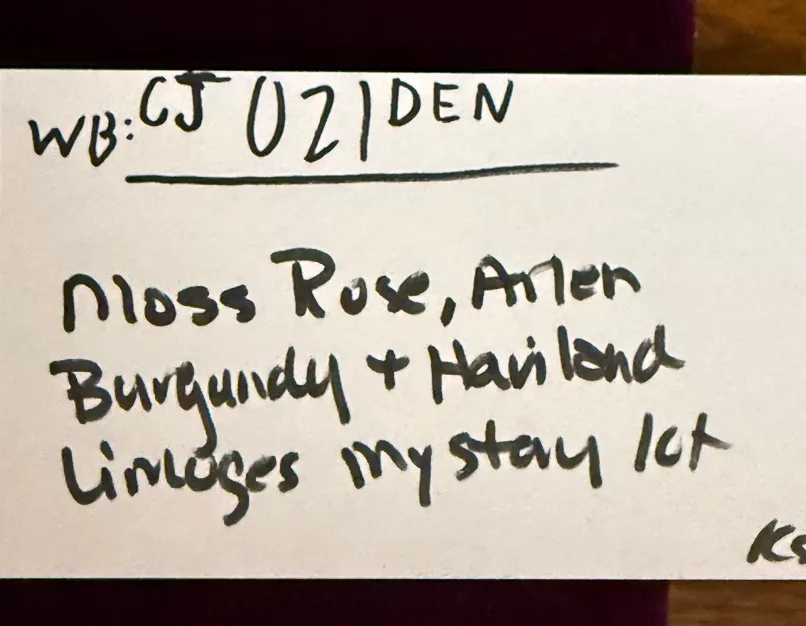 WB: CJ 021 DEN
Moss Rose, Arlen
Burgundy + Haviland
Limoges mystery lot
Ks